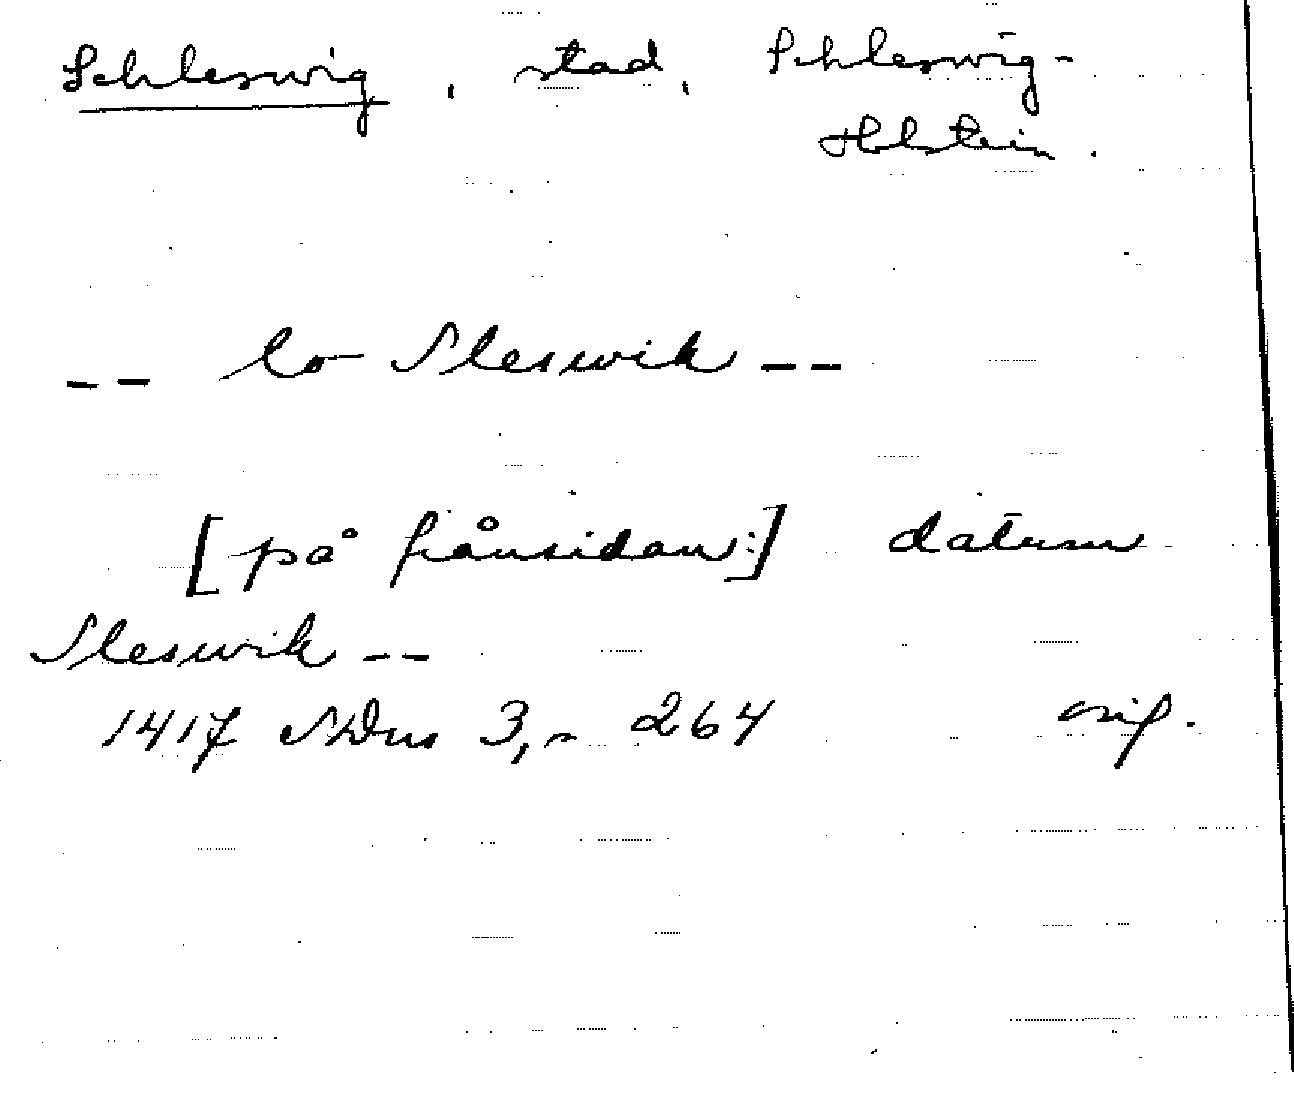 Schleswig, stad, Schleswig-
Holstein.
-- to Sleswik --
[på frånsidan:] datum
Sleswik --
1417 SDns 3, s 264 orig.